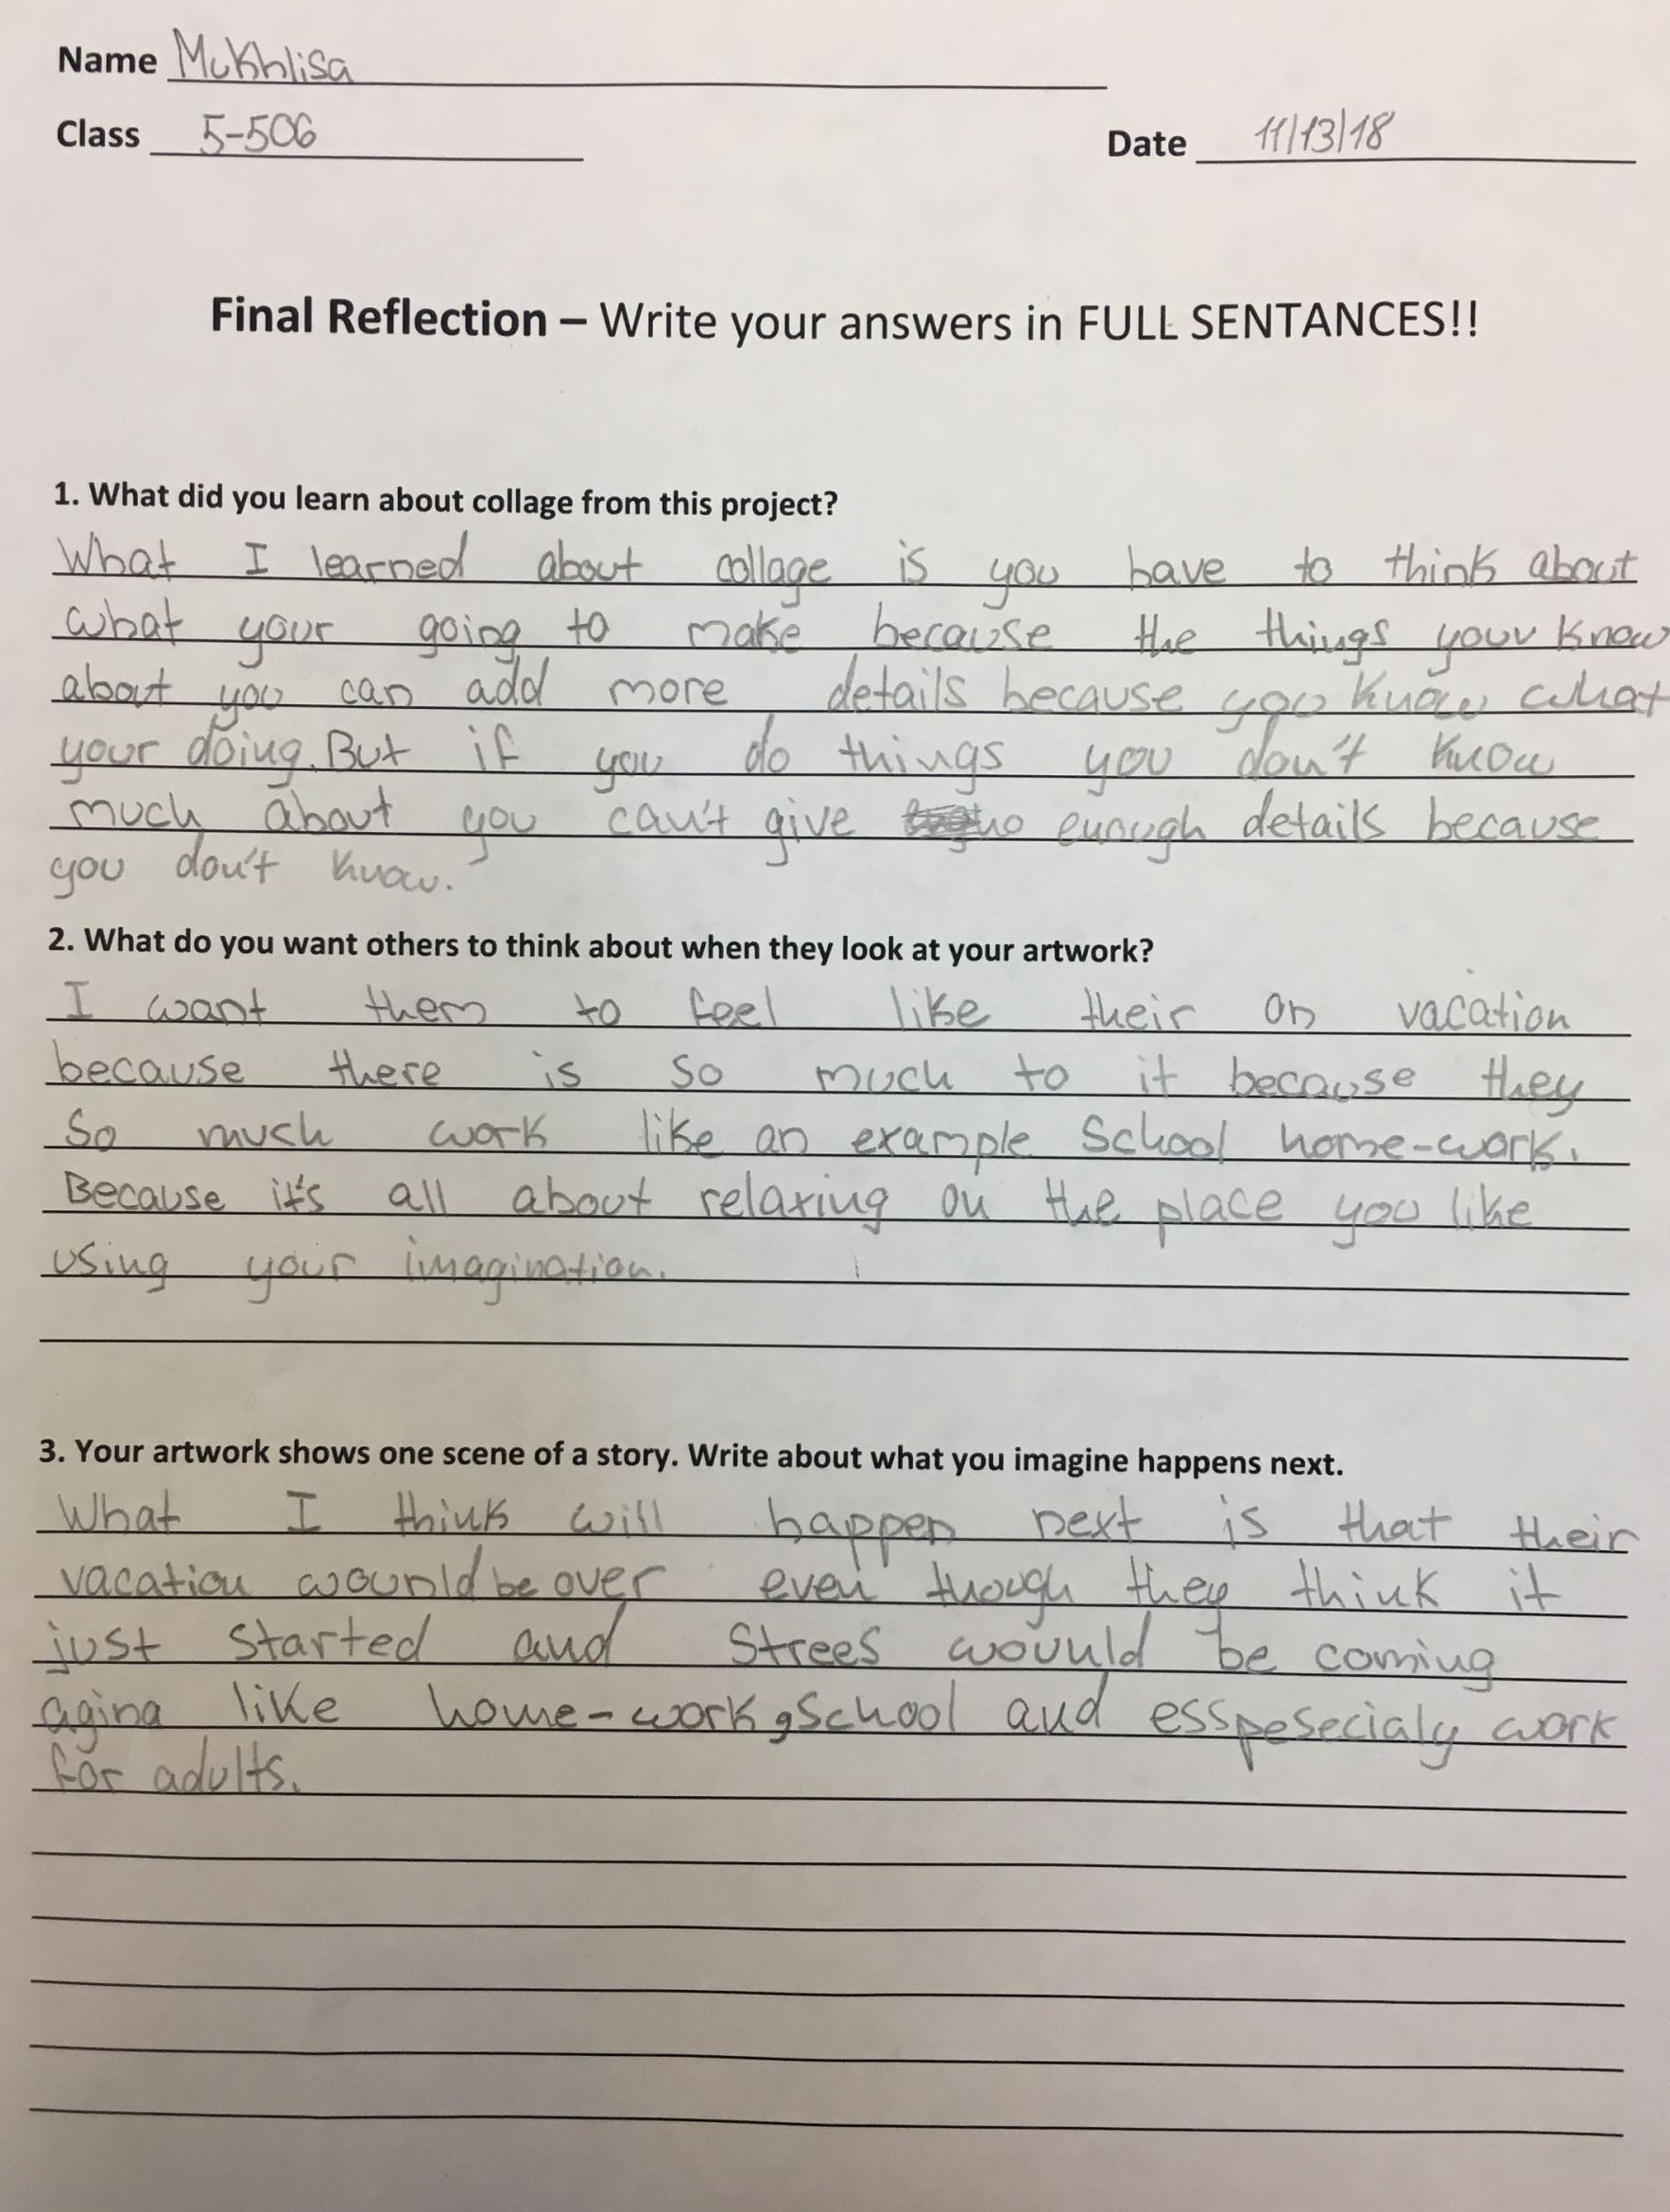 Name Mukhlisa
Class 5-506 Date 11/13/18
Final Reflection – Write your answers in FULL SENTANCES!!
1. What did you learn about collage from this project?
What I learned about collage is you have to think about
what your going to make because the things your know
about you can add more details because you know what
your doing. But if you do things you don't know
much about you can't give no enough details because
you don't know.
2. What do you want others to think about when they look at your artwork?
I want them to feel like their on vacation
because there is so much to it because they
So much work like an example School home-work.
Because it's all about relaxing on the place you like
using your imagination.
3. Your artwork shows one scene of a story. Write about what you imagine happens next.
What I think will happen next is that their
vacation wounld be over even though they think it
just started and Strees wouuld be coming
agina like home-work, School and esspesecialy work
for adults.